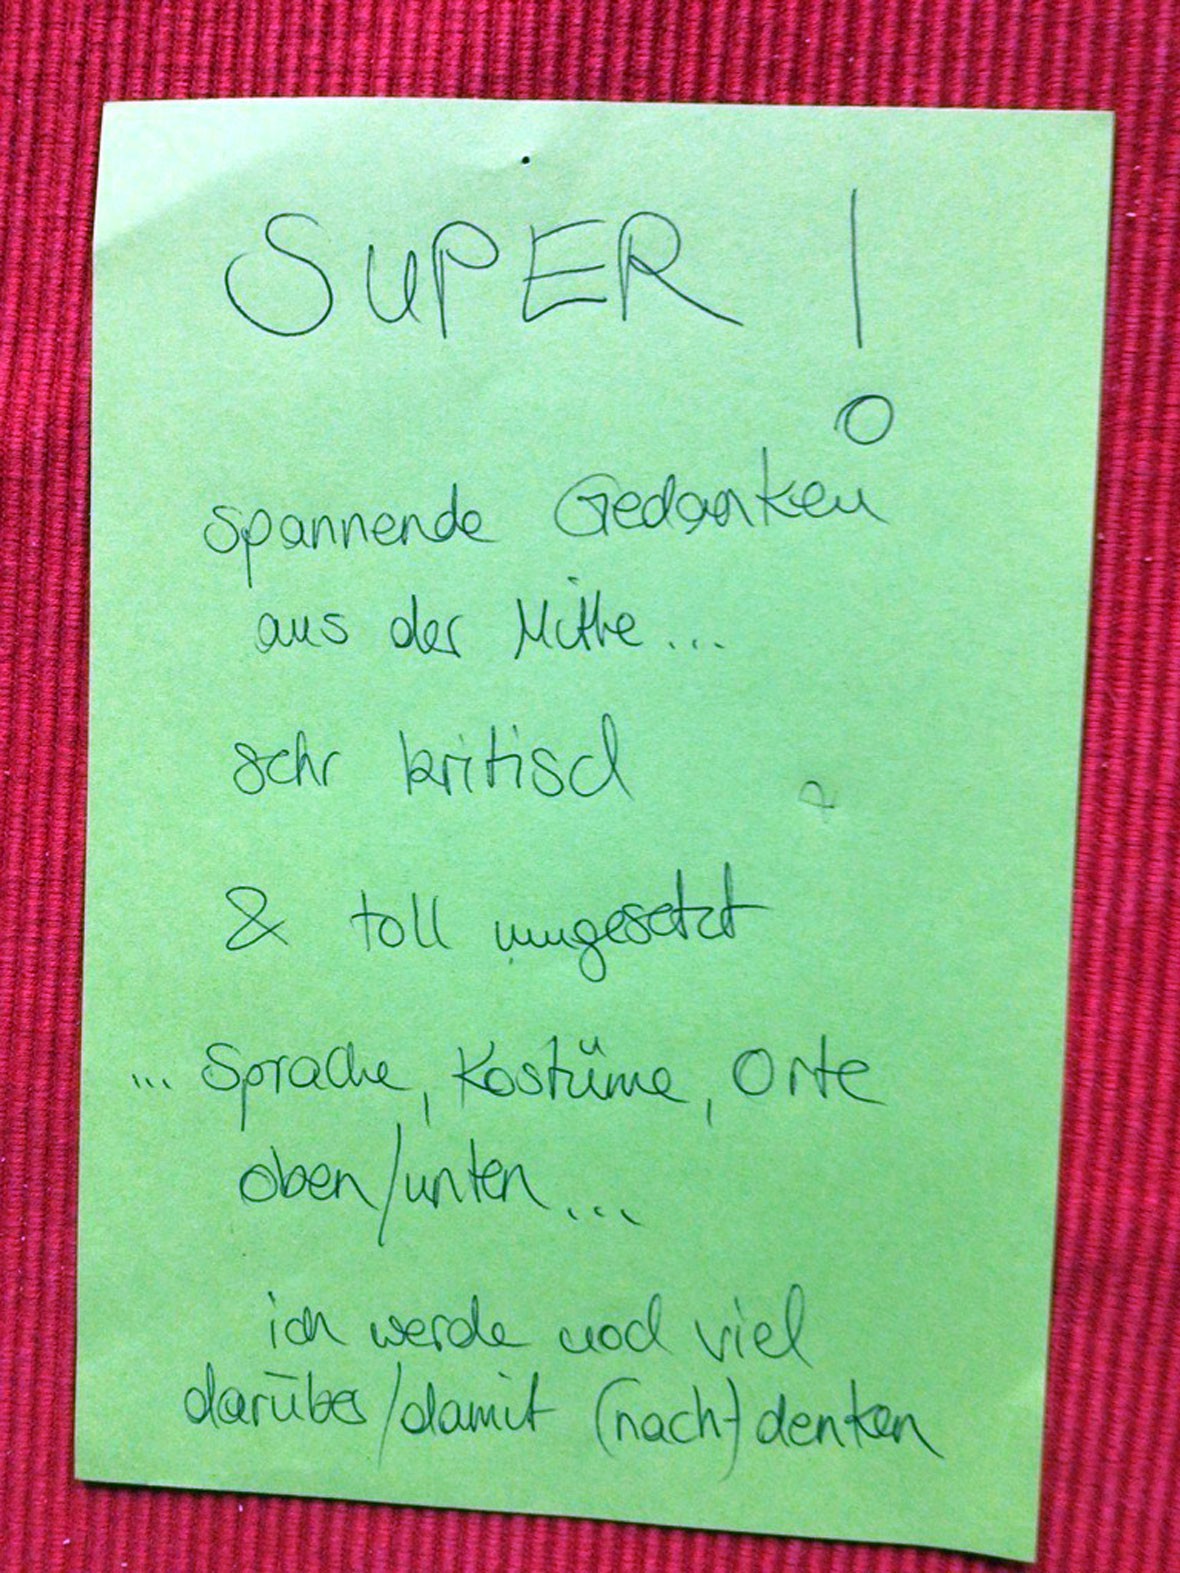 SUPER!
spannende Gedanken
aus der Mitte...
sehr kritisch
& toll umgesetzt
... Sprache, Kostüme, Orte
oben/unten...
ich werde noch viel
darüber/damit (nach-)denken